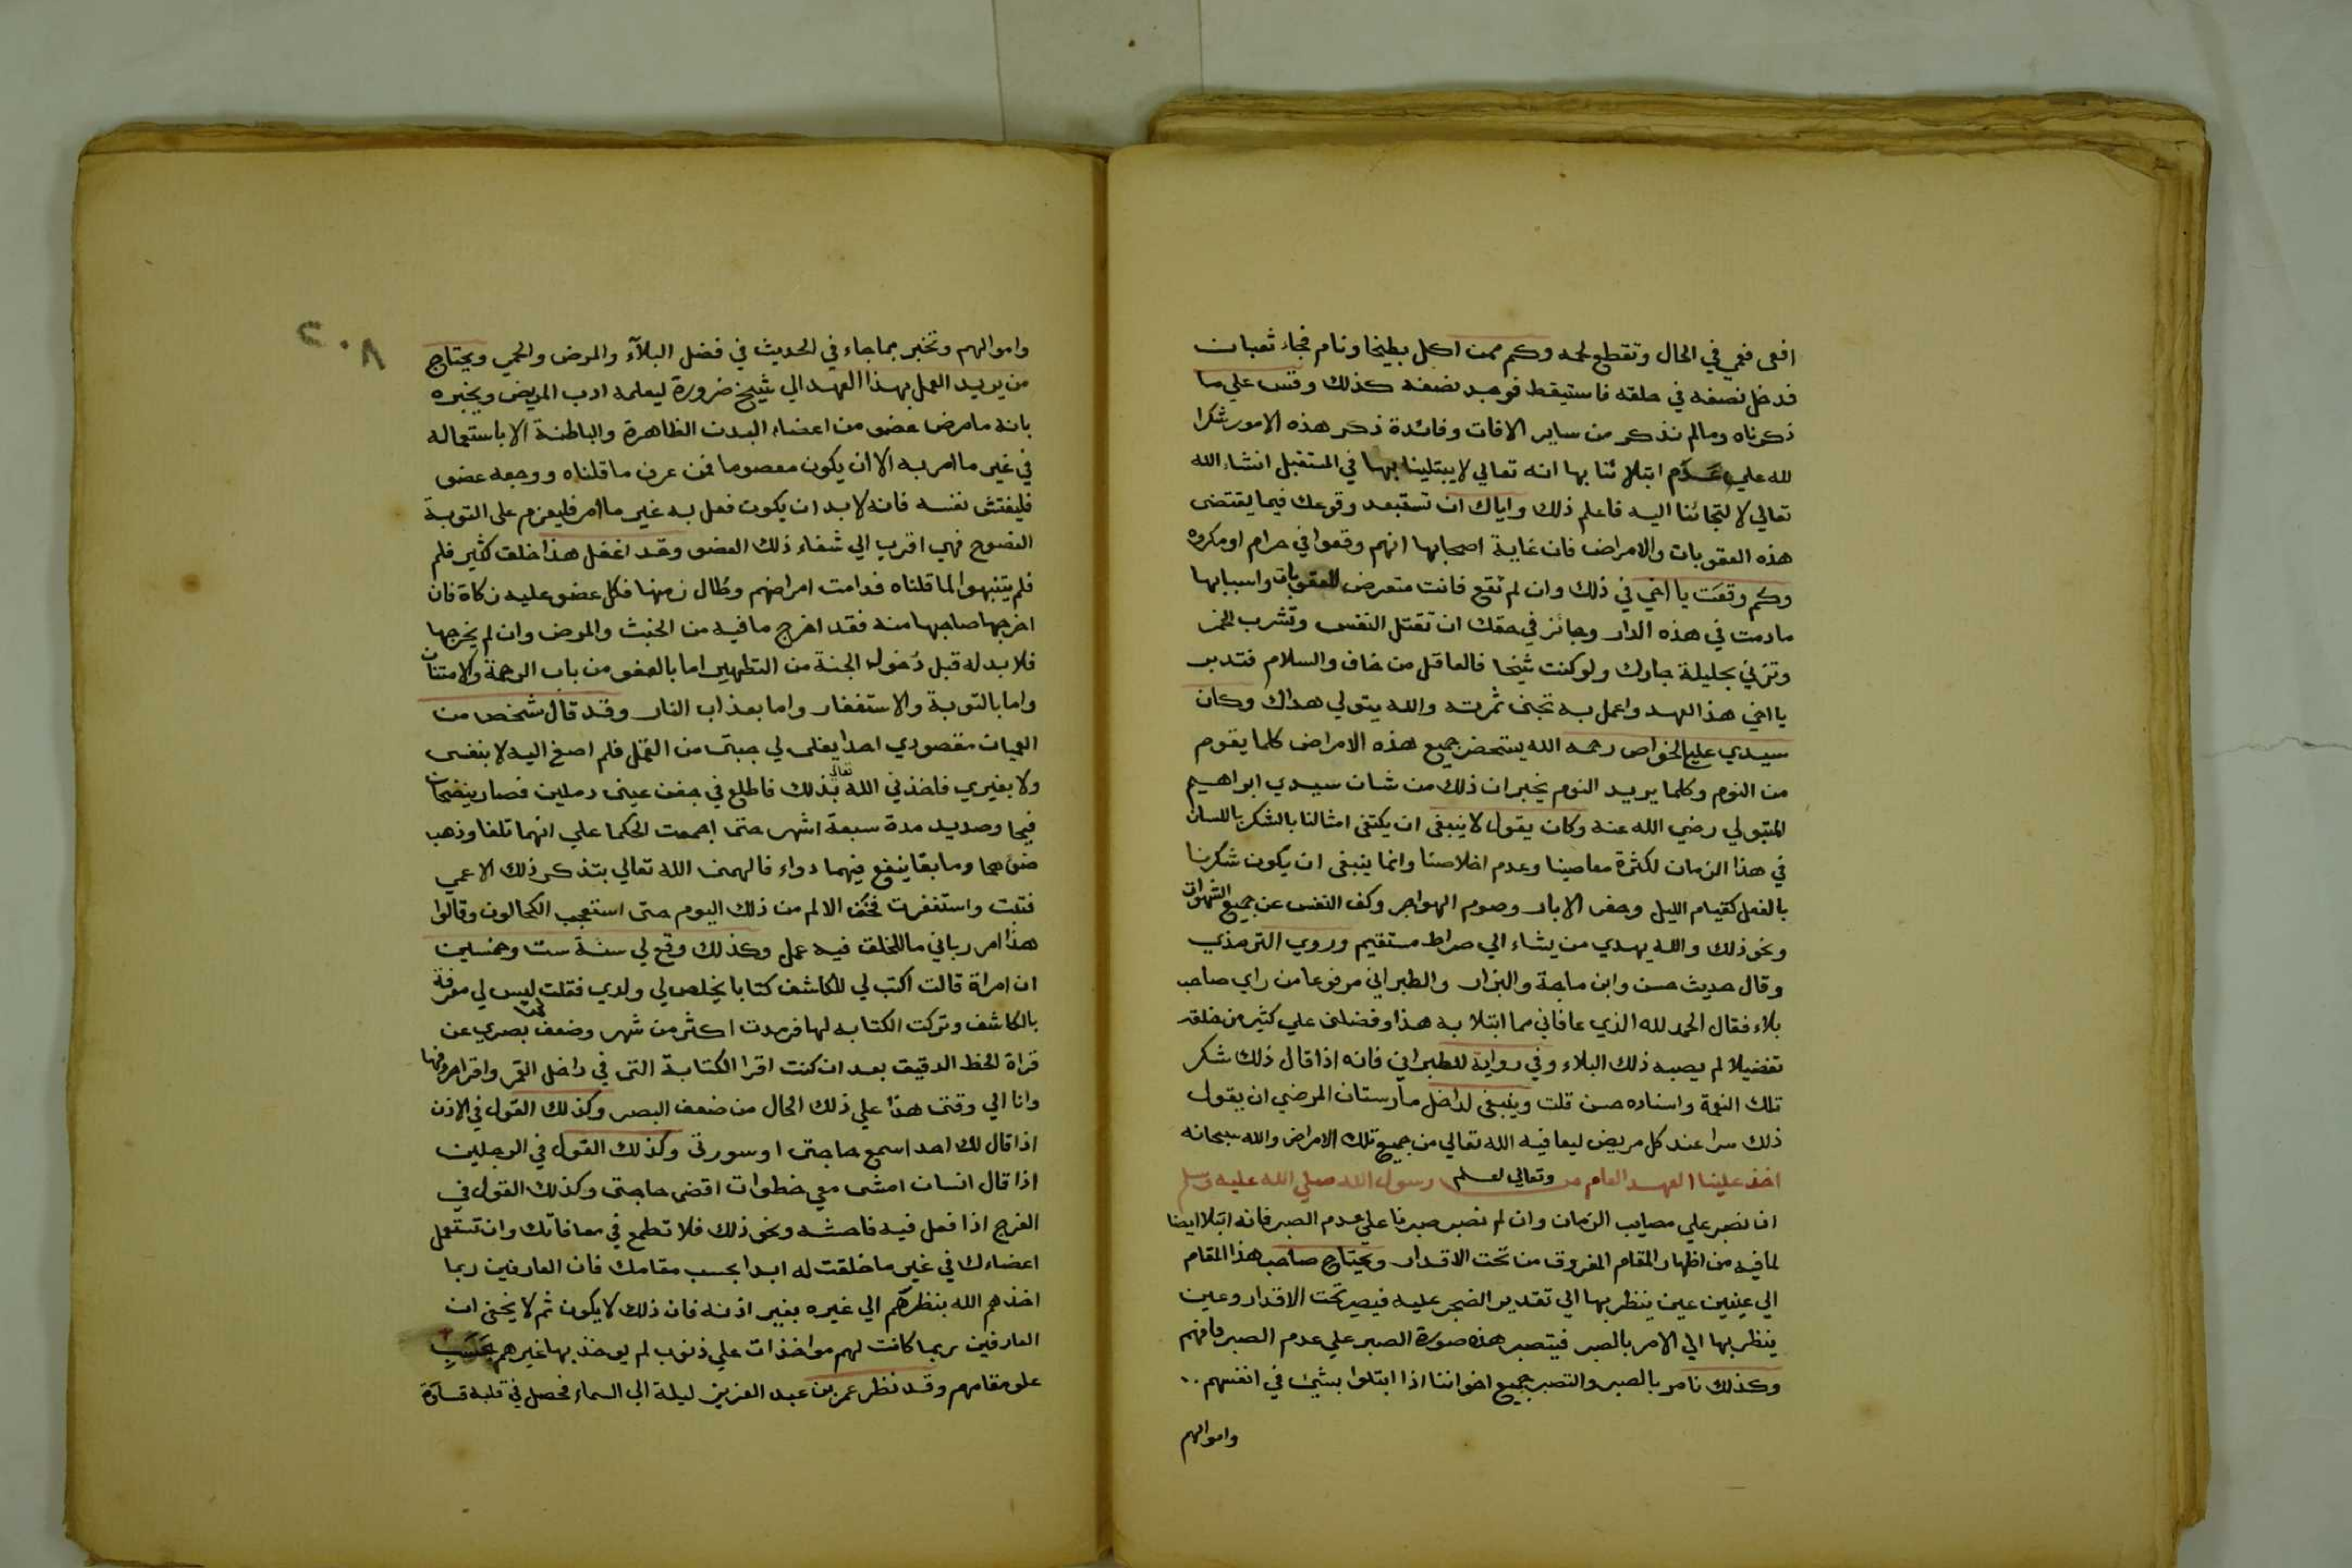 افعى فعمي في الحال وتقطع لحمه وكم ممن اكل بطيخا ونام فجاء ثعبان
فدخل نصفه في حلقه فاستيقظ فوجد نصفه كذلك وقس علي ما
ذكرناه ومالم نذكر من ساير الافات وفائدة ذكر هذه الامور شكرا
لله علي عدم ابتلائنا بها انه تعالي لا يبتلينا بها في المستقبل انشاء الله
تعالي لالتجائنا اليه فاعلم ذلك واياك ان تستبعد وقوعك فيما يقتضى
هذه العقوبات والامراض فان غاية اصحابها انهم وقعوا في حرام او مكروه
وكم وقعت يا اخي في ذلك وان لم تقع فانت متعرض للعقوبات واسبابها
مادمت في هذه الدار وجائز في حقك ان تقتل النفس وتشرب الخمر
وتزني بحليلة جارك ولو كنت شيخا فالعاقل من خاف والسلام فتدبر
يا اخي هذا العهد واعمل به تجنى ثمرته والله يتولي هداك وكان
سيدي علي الخواص رحمه الله يستحضر جميع هذه الامراض كلما يقوم
من النوم وكلما يريد النوم يخبر ان ذلك من شان سيدي ابراهيم
المتبولي رضي الله عنه وكان يقول لا ينبغى ان يكتفى امثالنا بالشكر باللسان
في هذا الزمان لكثرة معاصينا وعدم اخلاصنا وانما ينبغى ان يكون شكرنا
بالفعل كقيام الليل وحفر الابار وصوم الهواجر وكف النفس عن جميع الشهوات
ونحو ذلك والله يهدي من يشاء الي صراط مستقيم وروي الترمذي
وقال حديث حسن وابن ماجة والبزار والطبراني مرفوعا من راي صاحب
بلاء فقال الحمد لله الذي عافاني مما ابتلا به هذا وفضلنى علي كثير من خلقه
تفضيلا لم يصبه ذلك البلاء وفي رواية للطبراني فانه اذا قال ذلك شكر
تلك النعمة واسناده حسن قلت وينبغى لداخل مارستان المرضي ان يقول
ذلك سرا عند كل مريض ليعافيه الله تعالي من جميع تلك الامراض والله سبحانه
وتعالي اعلم
اخذ علينا العهد العام من رسول الله صلي الله عليه وسلم
ان نصبر علي مصايب الزمان وان لم نصبر صبرنا علي عدم الصبر فانه ابتلا ايضا
لما فيه من اظهار المقام المفروق من تحت الاقدار ويحتاج صاحب هذا المقام
الي عينين عين ينظر بها الي تقدير الضجر عليه فيصير تحت الاقدار وعين
ينظر بها الي الامر بالصبر فيتصبر هذه صورة الصبر علي عدم الصبر فافهم
وكذلك نامر بالصبر والتصبر جميع اخواننا اذا ابتلوا بشيئ في انفسهم
واموالهم
٢٠٨
واموالهم ونخبر بما جاء في الحديث في فضل البلآء والمرض والحمي ويحتاج
من يريد العمل بهذا العهد الي شيخ ضرورة ليعلمه ادب المريض ويخبره
بانه ما مرض عضو من اعضاء البدن الظاهرة والباطنة الا باستعماله
في غير ما امر به الا ان يكون معصوما فمن عرف ما قلناه ووجعه عضو
فليفتش نفسه فانه لا بد ان يكون فعل به غير ما امر فليعزم على التوبة
النصوح فهي اقرب الي شفاء ذلك العضو وقد اغفل هذا خلق كثير فلم
فلم يتنبهوا لما قلناه فدامت امراضهم وطال زمنها فكل عضو عليه زكاة فان
اخرجها صاحبها منه فقد اخرج ما فيه من الخبث والمرض وان لم يخرجها
فلا بد له قبل دخول الجنة من التطهير اما بالعفو من باب الرحمة والامتنان
واما بالتوبة والاستغفار واما بعذاب النار وقد قال شخص من
العميان مقصودي احدا يفلى لي جبتى من القمل فلم اصغ اليه لا بنفسى
ولا بغيري فاخذني الله تعالي بذلك فاطلع في جفن عينى دملين فصار ينضحان
قيحا وصديد مدة سبعة اشهر حتى اجمعت الحكما علي انهما تلفا وذهب
ضوءهما وما بقا ينفع فيهما دواء فالهمنى الله تعالي بتذكر ذلك الاعمي
فتبت واستغفرت فخف الالم من ذلك اليوم حتى استعجب الكحالون وقالوا
هذا امر رباني ما للخلق فيه عمل وكذلك وقع لي سنة ست وخمسين
ان امراة قالت اكتب لي للكاشف كتابا يخلص لي ولدي فقلت ليس لي معرفة
بالكاشف وتركت الكتابه لها فرمدت اكثر من شهر وضعف بصري عن
قراة الخط الدقيق بعد ان كنت اقرا الكتابة التى في داخل القمر واقرا حروفها
وانا الي وقتى هذا علي ذلك الحال من ضعف البصر وكذلك القول في الاذن
اذا قال لك احد اسمع حاجتى او سورتى وكذلك القول في الرجلين
اذا قال انسان امشى معي خطوات اقضى حاجتى وكذلك القول في
الفرج اذا فعل فيه فاحشه ونحو ذلك فلا تطمع في معافاتك وان تستعمل
اعضاءك في غير ما خلقت له ابدا بحسب مقامك فان العارفين ربما
اخذهم الله بنظرهم الي غيره بغير اذنه فان ذلك لا يكون ثم لا يخفى ان
العارفين ربما كانت لهم مواخذات علي ذنوب لم يوخذ بها غيرهم بحسب
علو مقامهم وقد نظر عمر بن عبد العزيز ليلة الي السماء فحصل في قلبه قساوة